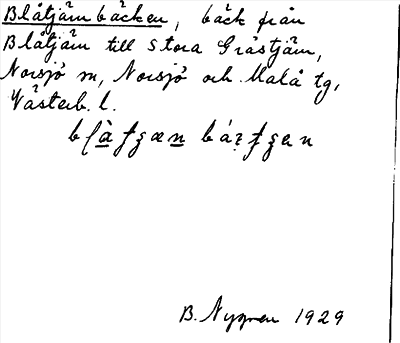 Blåtjärnbäcken, bäck från
Blåtjärn till Stora Gråstjärn,
Norsjö sn, Norsjö och Malå tg,
Västerb. l.
B. Nygren 1929